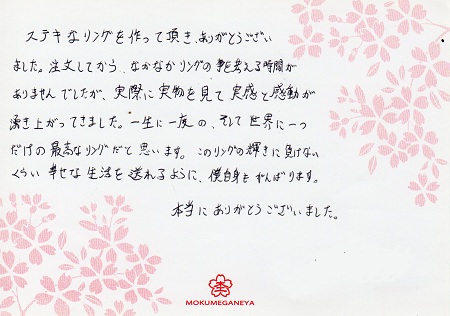 ステキなリングを作って頂き、ありがとうござい
ました。注文してから、なかなかリングの事を考える時間が
ありませんでしたが、実際に実物を見て実感と感動が
湧き上がってきました。一生に一度の、そして世界に一つ
だけの最高なリングだと思います。このリングの輝きに負けない
くらい幸せな生活を送れるように、僕自身もがんばります。
本当にありがとうございました。
MOKUMEGANEYA